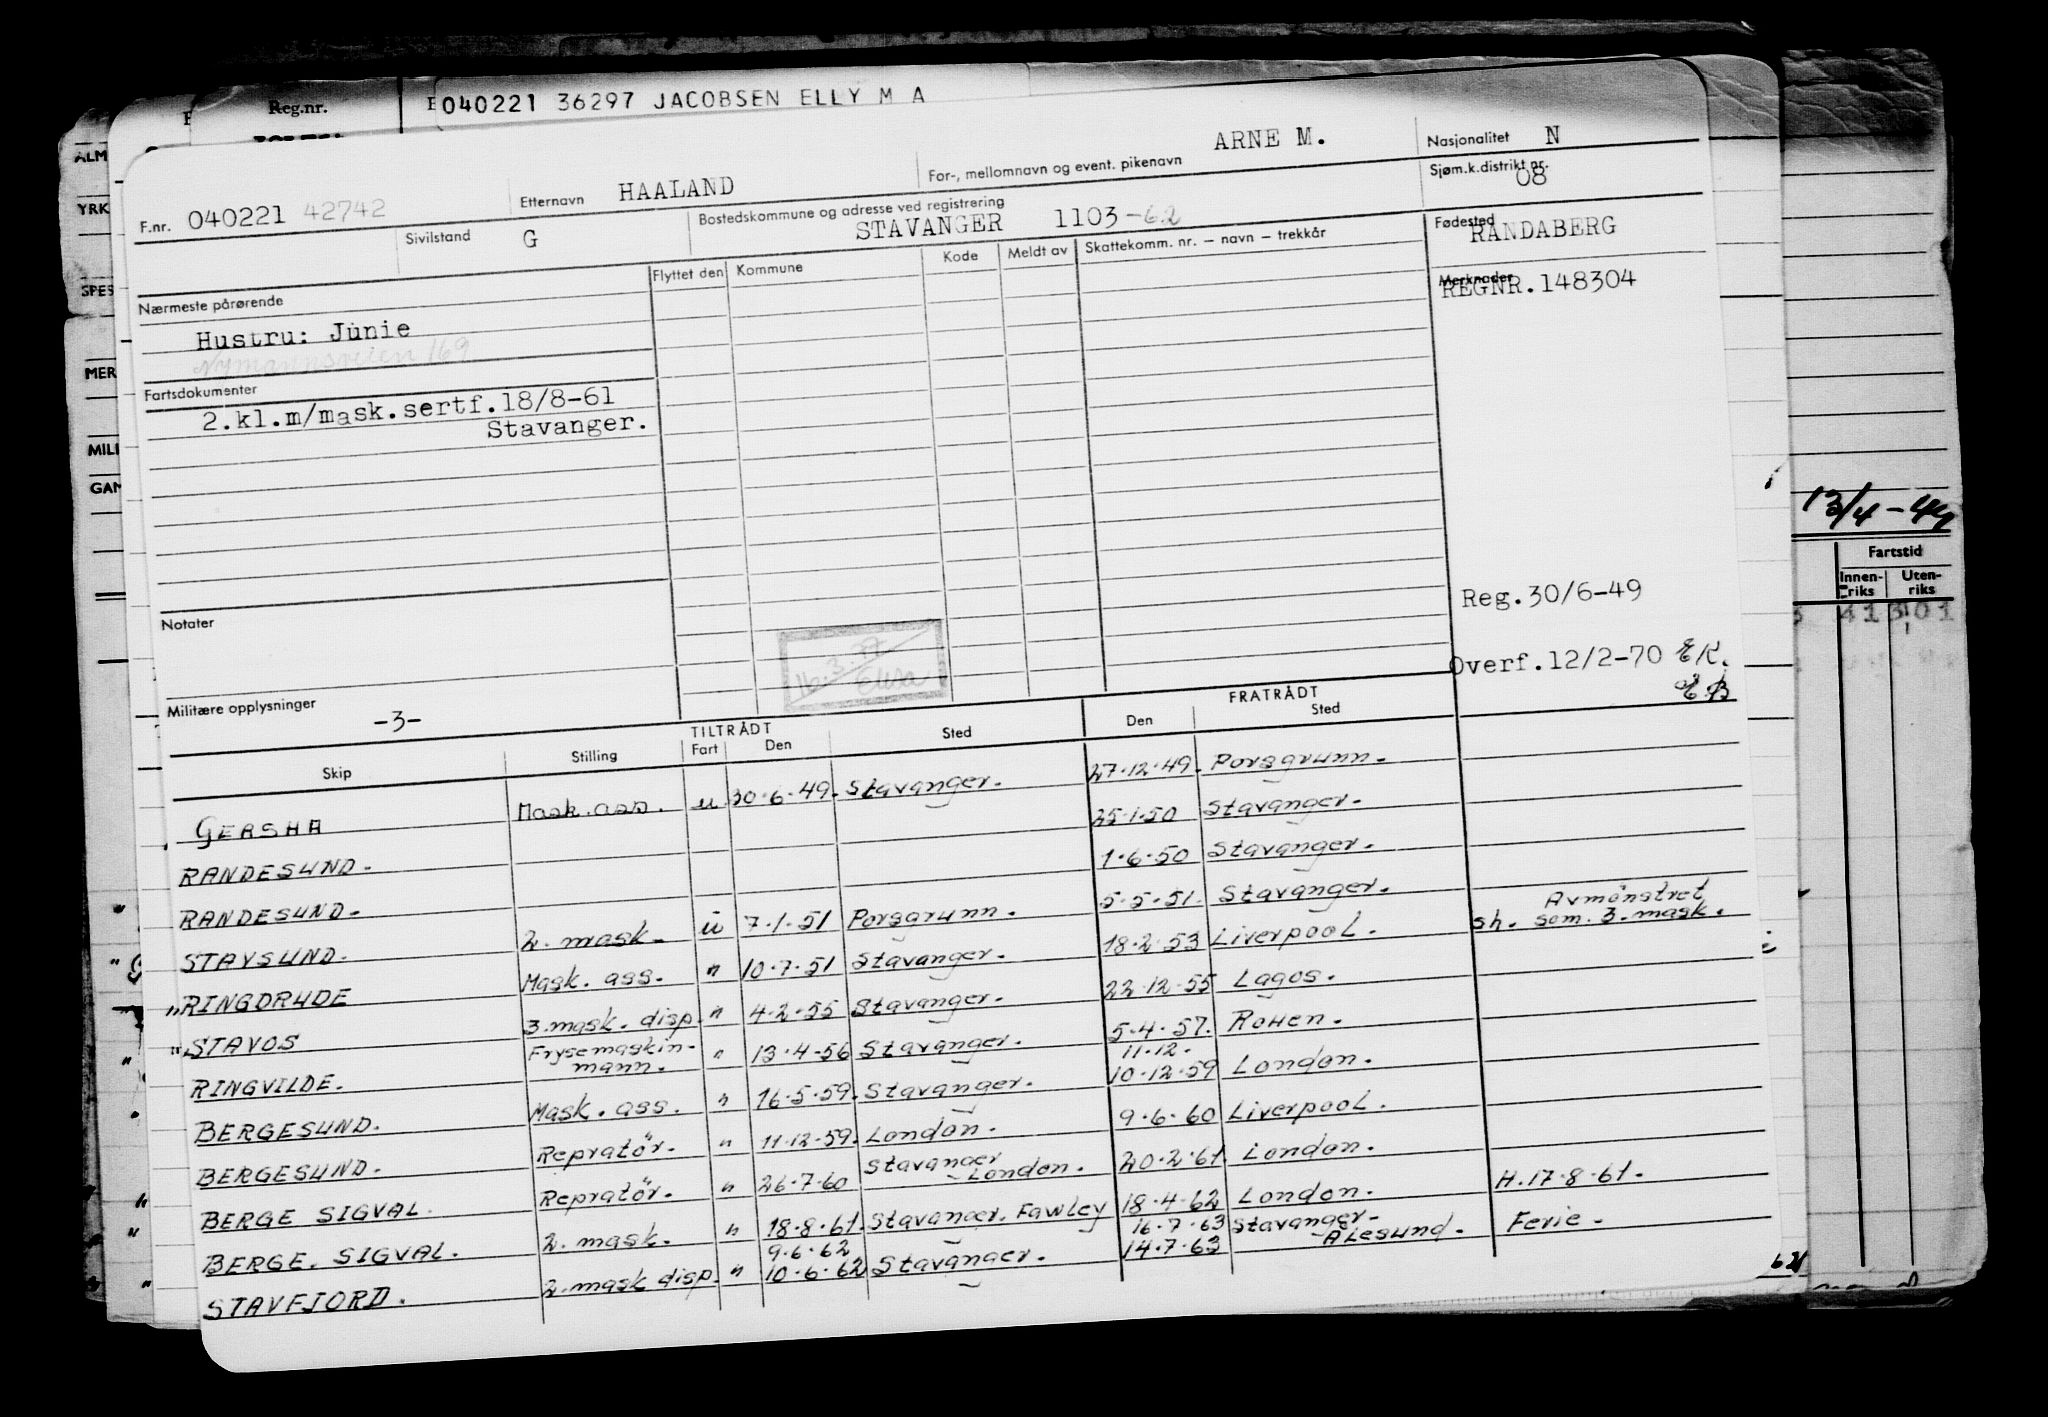 Reg.nr.
040221 36297 JACOBSEN ELLY M A
ALM
YRK
SPES
MER
MILI
GAN
F.nr. 040221 42742
Etternavn HAALAND
For-, mellomnavn og event. pikenavn ARNE M.
Nasjonalitet N
Sjøm.k.distrikt nr. 08
Sivilstand G
Bostedskommune og adresse ved registrering
STAVANGER 1103-62
Fødested
RANDABERG
Nærmeste pårørende
Hustru: Junie
Nymannsveien 169
Flyttet den Kommune Kode Meldt av Skattekomm. nr. – navn – trekkår
Merknader
REGNR.148304
Fartsdokumenter
2.kl.m/mask.sertf.18/8-61
Stavanger.
Reg.30/6-49
Overf.12/2-70 EK.
E.B
Notater
16.3.77
Elisa
Militære opplysninger -3-
13/4-49
Fartstid
Innen-riks Uten-riks
41 301
TILTRÅDT FRATRÅDT
Skip Stilling Fart Den Sted Den Sted
GERSHA Mask. ass. u 30.6.49. Stavanger. 27.12.49. Porsgrunn.
RANDESUND. 25.1.50 Stavanger.
RANDESUND. 1.6.50 Stavanger.
STAVSUND. 2. mask. u 7.1.51 Porsgrunn. 5.5.51. Stavanger. Avmönstret
sh. som. 3. mask.
" RINGDRUDE Mask. ass. " 10.7.51 Stavanger. 18.2.53 Liverpool.
" STAVOS 3. mask. disp. " 4.2.55 Stavanger. 22.12.55 Lagos.
RINGVILDE. Frysemaskin-
mann. " 13.4.56 Stavanger. 5.4.57. Rouen.
BERGESUND. Mask. ass. " 16.5.59. Stavanger. 11.12.
10.12.59 London.
BERGESUND. Repratör. " 11.12.59. London. 9.6.60 Liverpool.
BERGE SIGVAL. Repratör. " 26.7.60 Stavanger
London. 20.2.61. London.
BERGE. SIGVAL. 2. mask. " 18.8.61. Stavanger. Fawley 18.4.62 London. H.17.8.61.
STAVFJORD. 2. mask disp. " 9.6.62
10.6.62 Stavanger. 16.7.63
14.7.63 Stavanger-
Ålesund. Ferie.